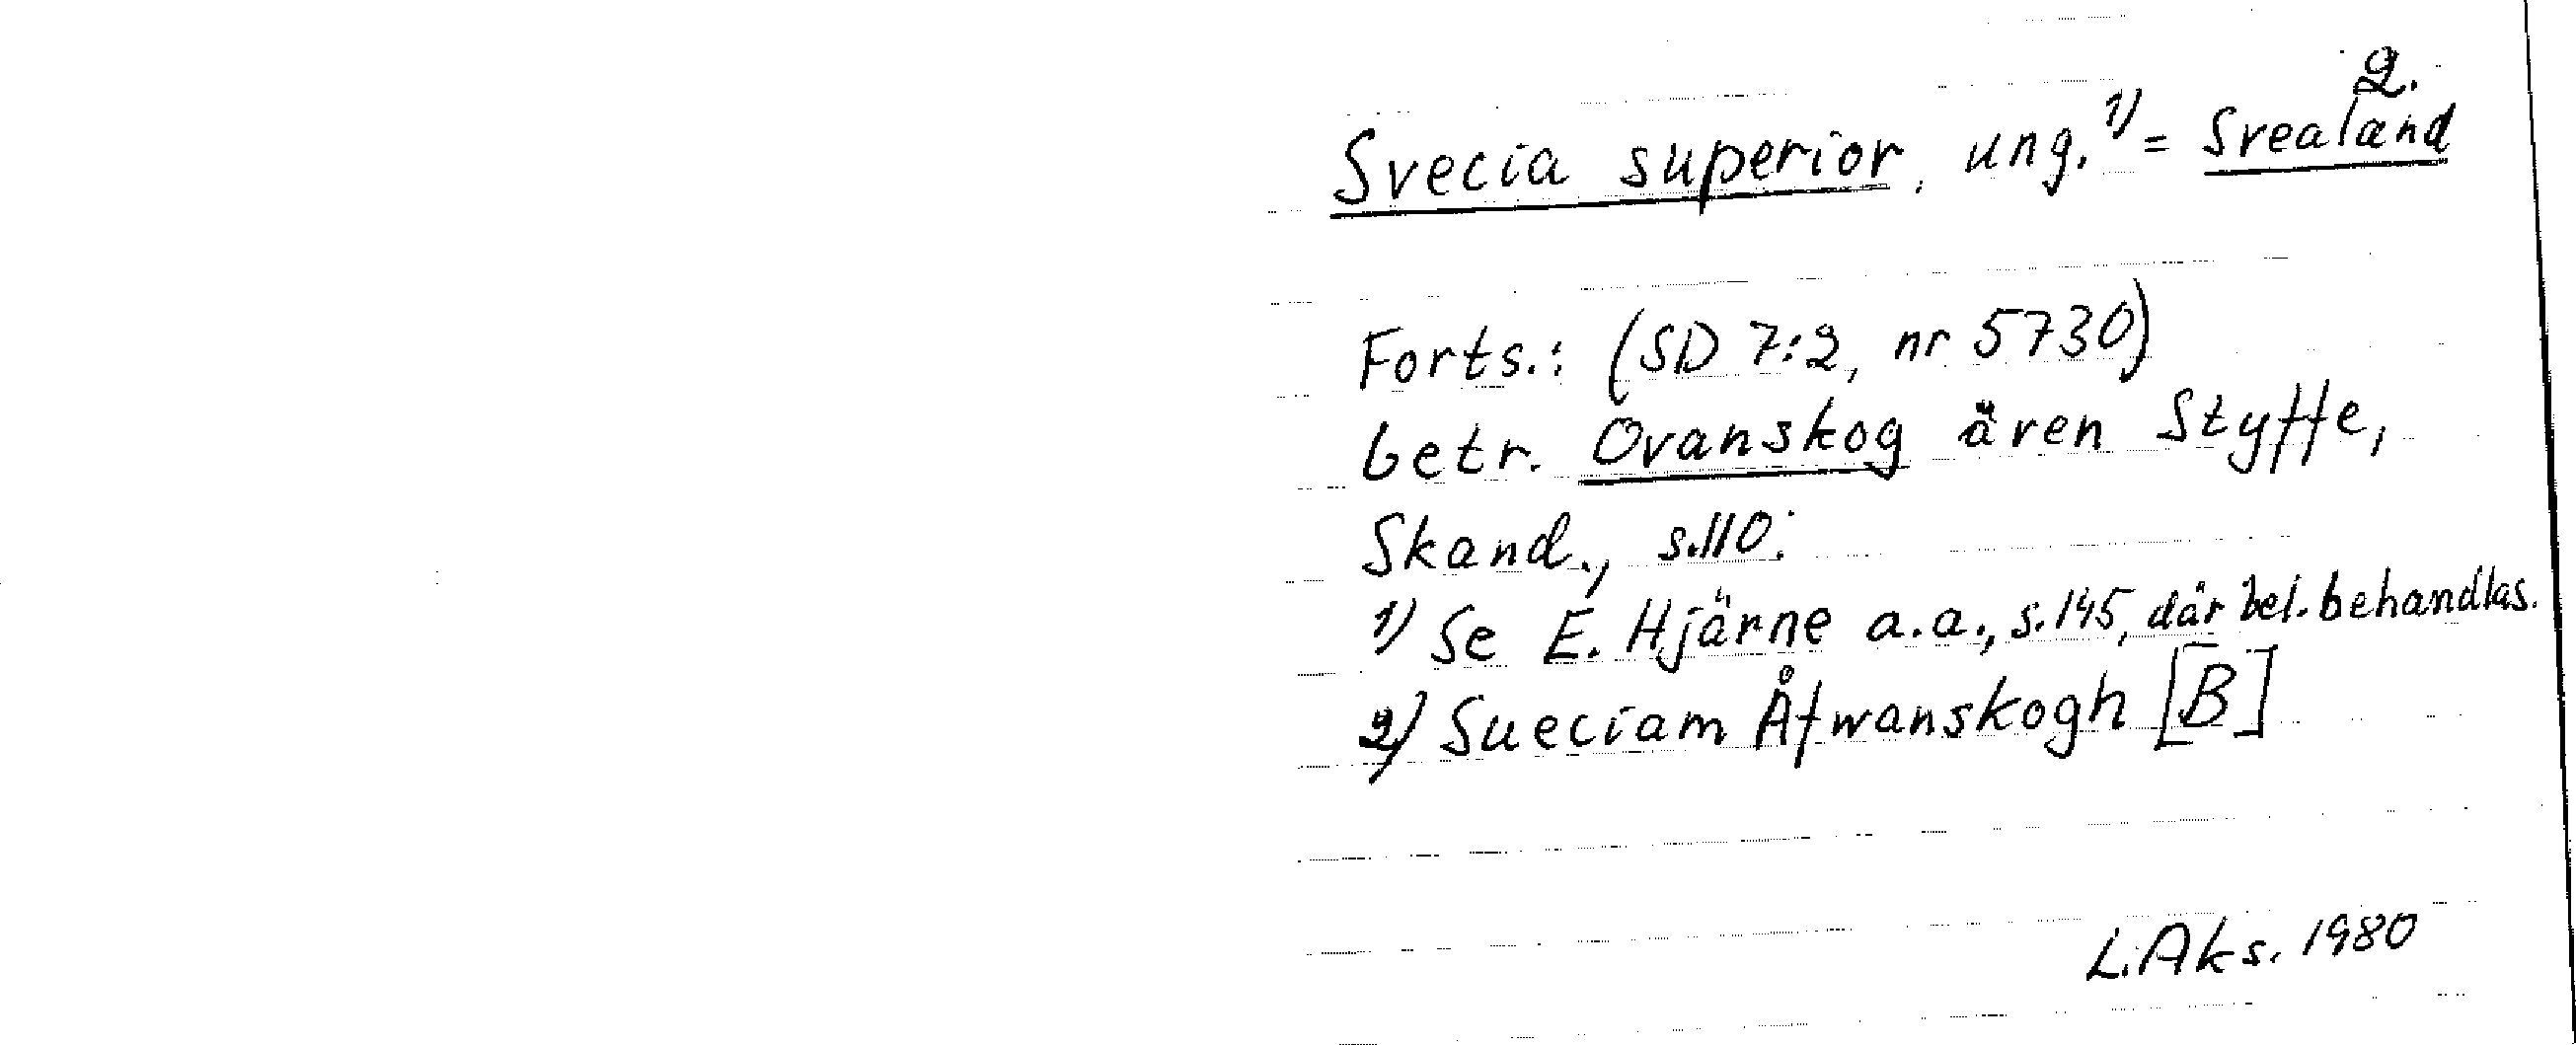 2.
Svecia superior, ung. 1) = Svealand
Forts.: (SD 7:2, nr 5730)
betr. Ovanskog även Styffe,
Skand., s.110.
1) Se E. Hjärne a.a., s.145, där bel. behandlas.
2) Sueciam Åfwanskogh [B]
L.Aks. 1980